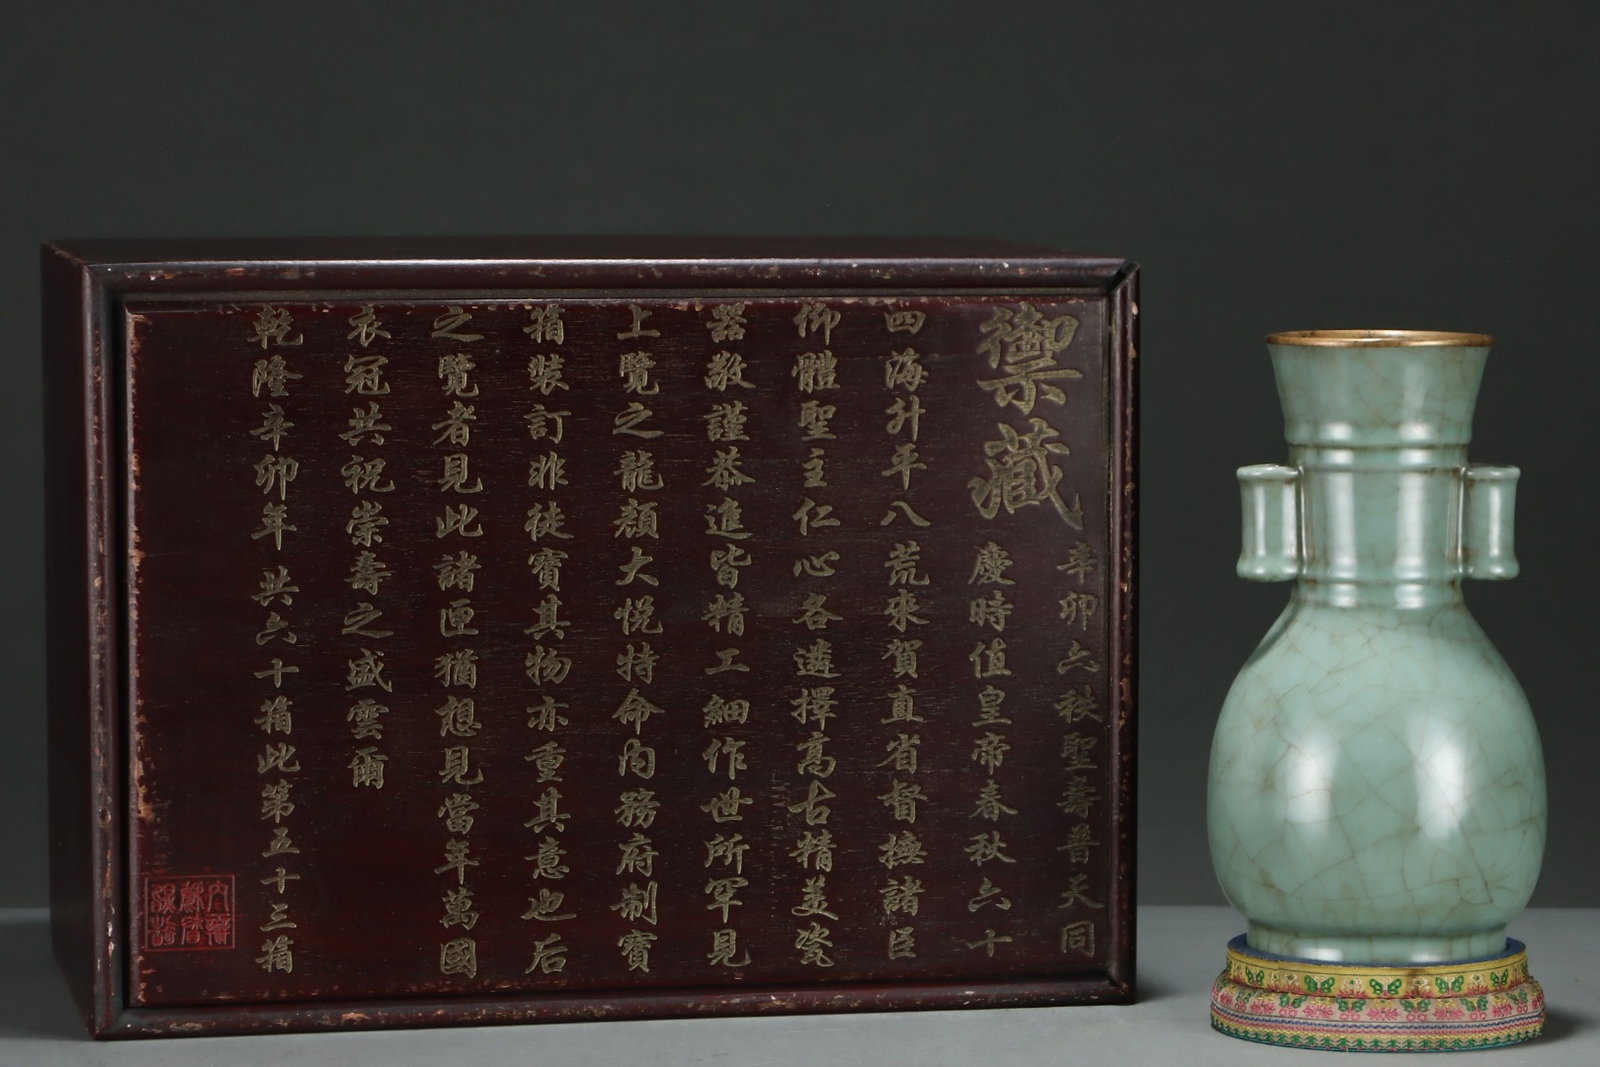 禦藏
辛卯六秩聖壽普天同
慶時值皇帝春秋六十
四海升平八荒來賀直省督撫諸臣
仰體聖主仁心各遴擇高古精美瓷
器敬謹恭進皆精工細作世所罕見
上覽之龍顏大悅特命內務府制寶
箱裝訂非徒寶其物亦重其意也后
之覽者見此諸匣猶想見當年萬國
衣冠共祝崇壽之盛雲爾
乾隆辛卯年共六十箱此第五十三箱